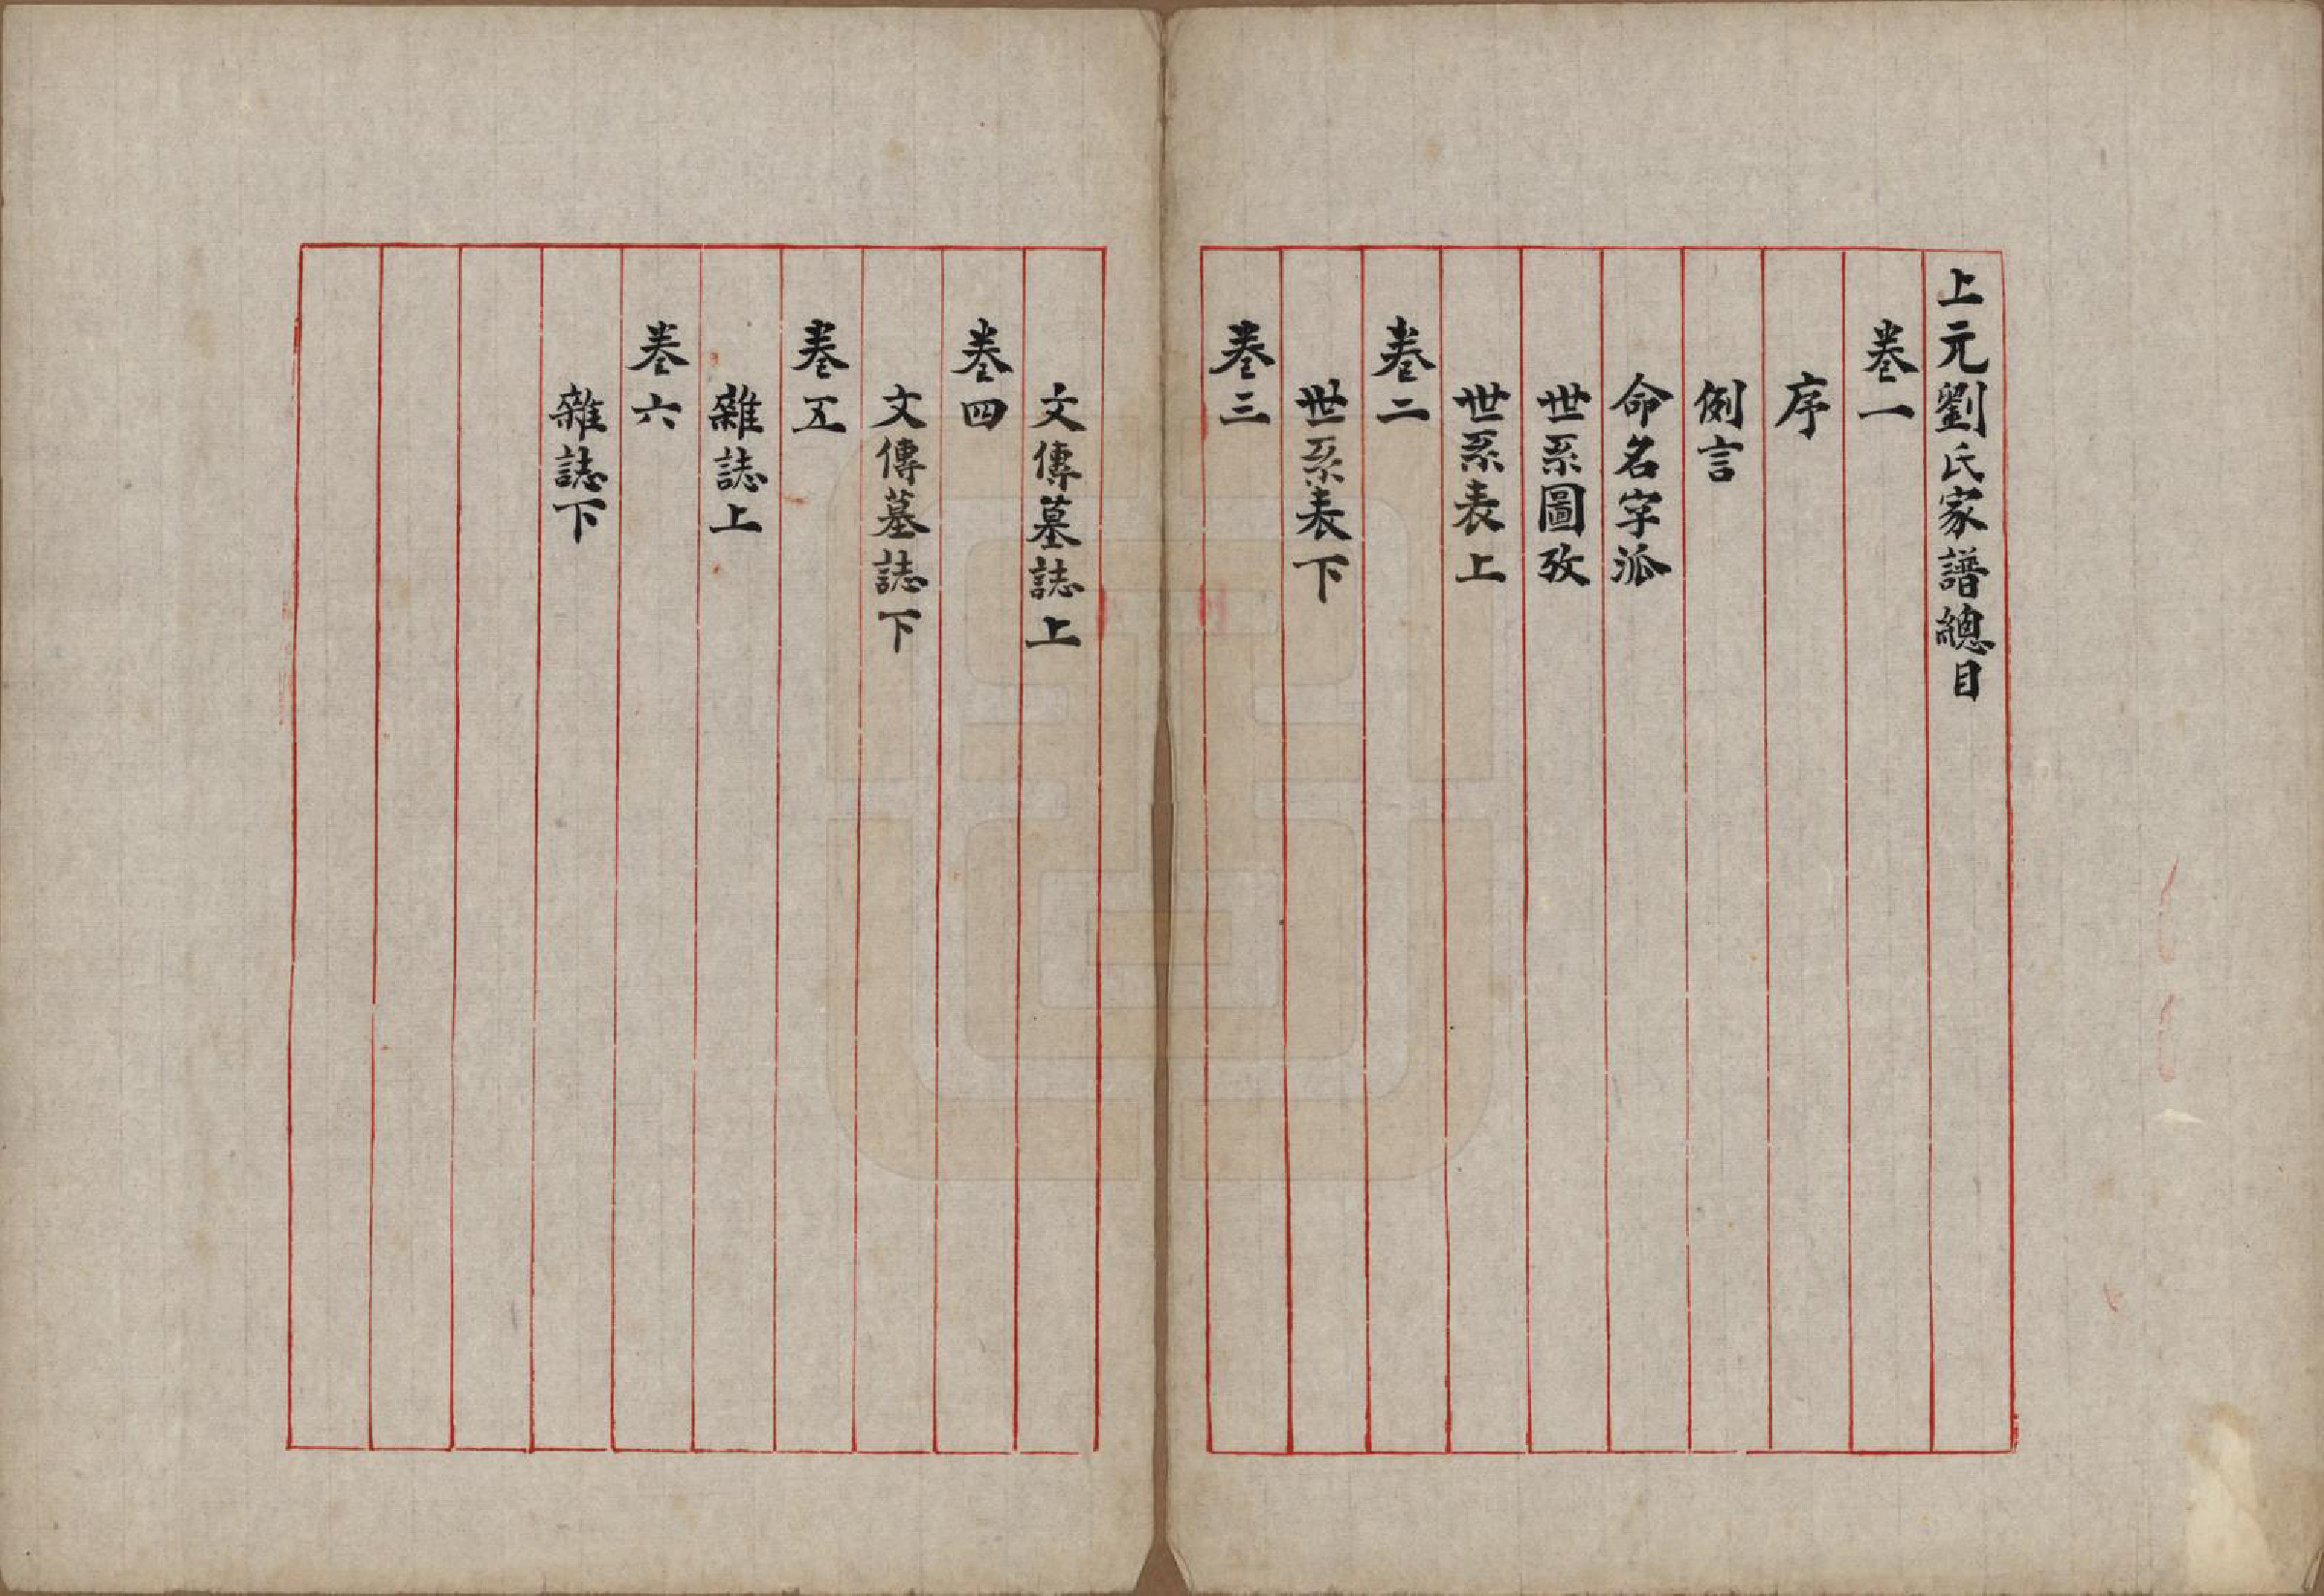 上元劉氏家譜總目
卷一
序
例言
命名字派
世系圖攷
世系表上
卷二
世系表下
卷三
文傳墓誌上
卷四
文傳墓誌下
卷五
雜誌上
卷六
雜誌下